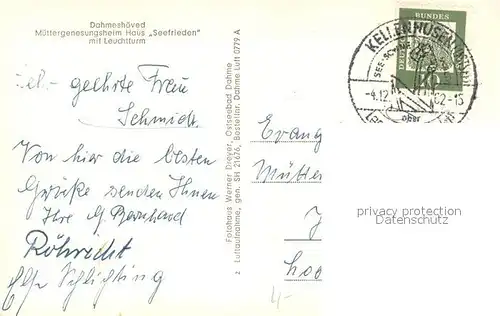 Dahmeshöved
Müttergenesungsheim Haus „Seefrieden"
mit Leuchtturm
geehrte Frau
Schmidt
Von hier die besten
Grüße senden Ihnen
Ihre G. Bernhard
Röhricht
Else Schlichting
Fotohaus Werner Dreyer, Ostseebad Dahme
z Luftaufnahme, gen. SH 21676, Bestellnr. Dahme Luft 0779 A
KELLENHUSEN
-4.12. 62-15
BUNDES
Evang
Mütter
4,-
privacy protection
Datenschutz